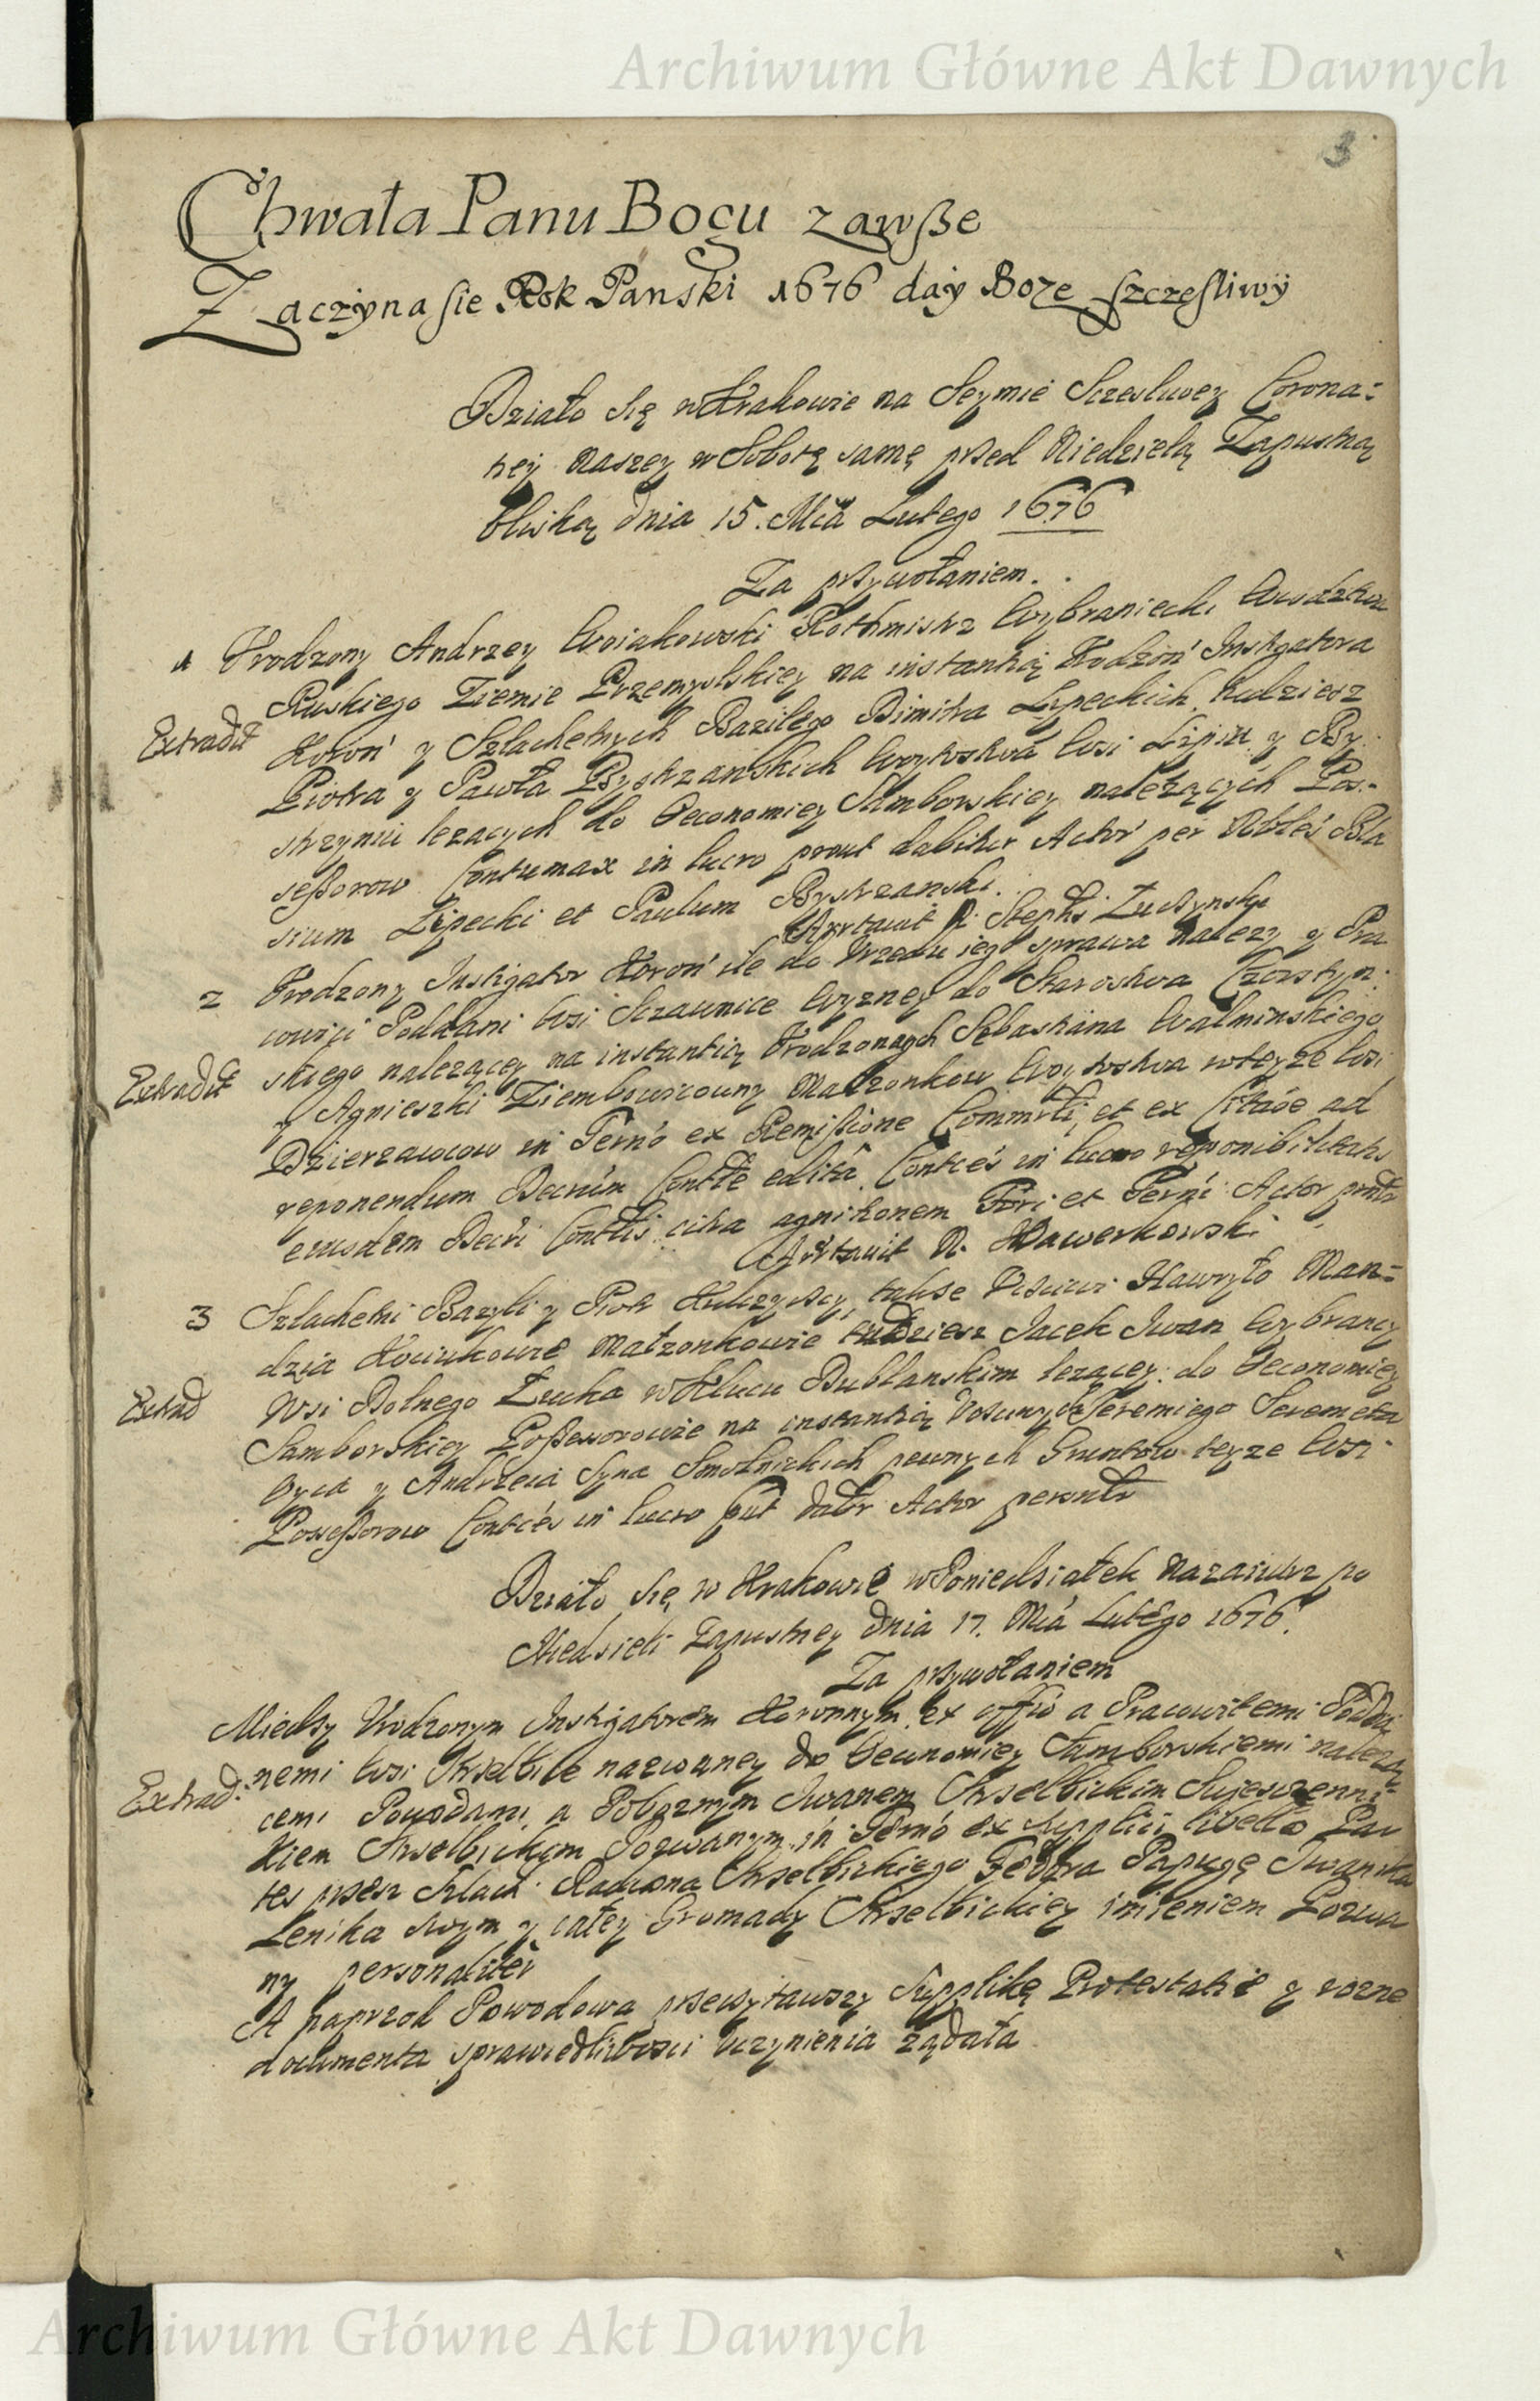 Archiwum Główne Akt Dawnych
3
Chwała Panu Bogu zawsze
Zaczyna sie Rok Panski 1676 day Boze szczesliwy
Działo się w Krakowie na Seymie Sczesliwey Corona:
tiey naszey w Sobotę samę przed Niedzielą Zapustną
bliską dnia 15. Mca Lutego 1676
Za przywołaniem.
1 Urodzony Andrzey Woiakowski Rothmistrz Wybraniecki Wwdztwa
Ruskiego Ziemie Przemyslskiey na instantią Urodzon Instigatora
Extradit
Koron y Szlachetnych Bazilego Dimitra Lipeckich, tudziesz
Piotra y Pawła Bystrzanskich Woytostwa Wsi Lipia y By
strzyniu lezacych do Oeconomiey Samborskiey należących Pos-
sessorow Contumax in lucro prout dabitur Actor per Nobles Bla
sium Lipecki et Paulum Bystrzanski.
Arrtavit N. Stephs Zuczynsky
2 Urodzony Instigator Koron ile do Urzedu iego sprawa należy y Pra
cowici Poddani Wsi Sczawnice Wyzney do Starostwa Czorstyn:
skiego nalezącey na instantią Urodzonych Sebastiana Walminskiego
Extradit
y Agnieszki Ziembowicowny Małzonkow Woytostwa w teyze Wsi
Dzierzawcow in Termo ex Remissione Commrli, et ex Citaoe ad
reponendum Decrum Contle edita. Conttes in lucro reponibilitatis
eiusdem Decri Conttis citra agnitionem Fori et Termi Actor prntr
Arrtavit N. Hawerkowski
3 Szlachetni Bazyli y Piotr Kulczyscy, takse Usciwi Hawryło Man:
dzia Kociukowie Małzonkowie tudziesz Jacek Iwan Wybrancy
Extrad
Wsi Dolnego Łucka w Kluczu Dublanskim lezącey do Oeconomiey
Samborskiey Possessorowie na instantią Uscziwych Jeremiego Seremeta
Oyca y Andrzeia Syna Smolnickich pewnych Gruntow teyze Wsi
Possessorow Conttes in lucro put dabr Actor personlr
Działo się w Krakowie w Poniedziałek nazaiutrz po
Niedzieli Zapustney dnia 17. Mca Lutego 1676.
Za przywołaniem
Miedzy Urodzonym Instigatorem Koronnym ex offio a Pracowitemi Podda
nemi Wsi Strzelbice nazwaney do Oeconomiey Samborskiemi należą
Extrad:
cemi Powodami, a Poboznym Iwanem Strzelbickim Swieszczenni
kiem Strzelbickym Pozwanym in Termo ex supplici libello Par
tes przez szlach Radiona Strzelbickiego Fedora Papugę Iwanika
Lenika swym y całey Gromady Strzelbickiey imieniem Pozwa
ny personaliter
A naprzod Powodowa przeczytawszy Supplikę Protestatie y rozne
documenta sprawiedliwosci uczynienia ządała
Archiwum Główne Akt Dawnych